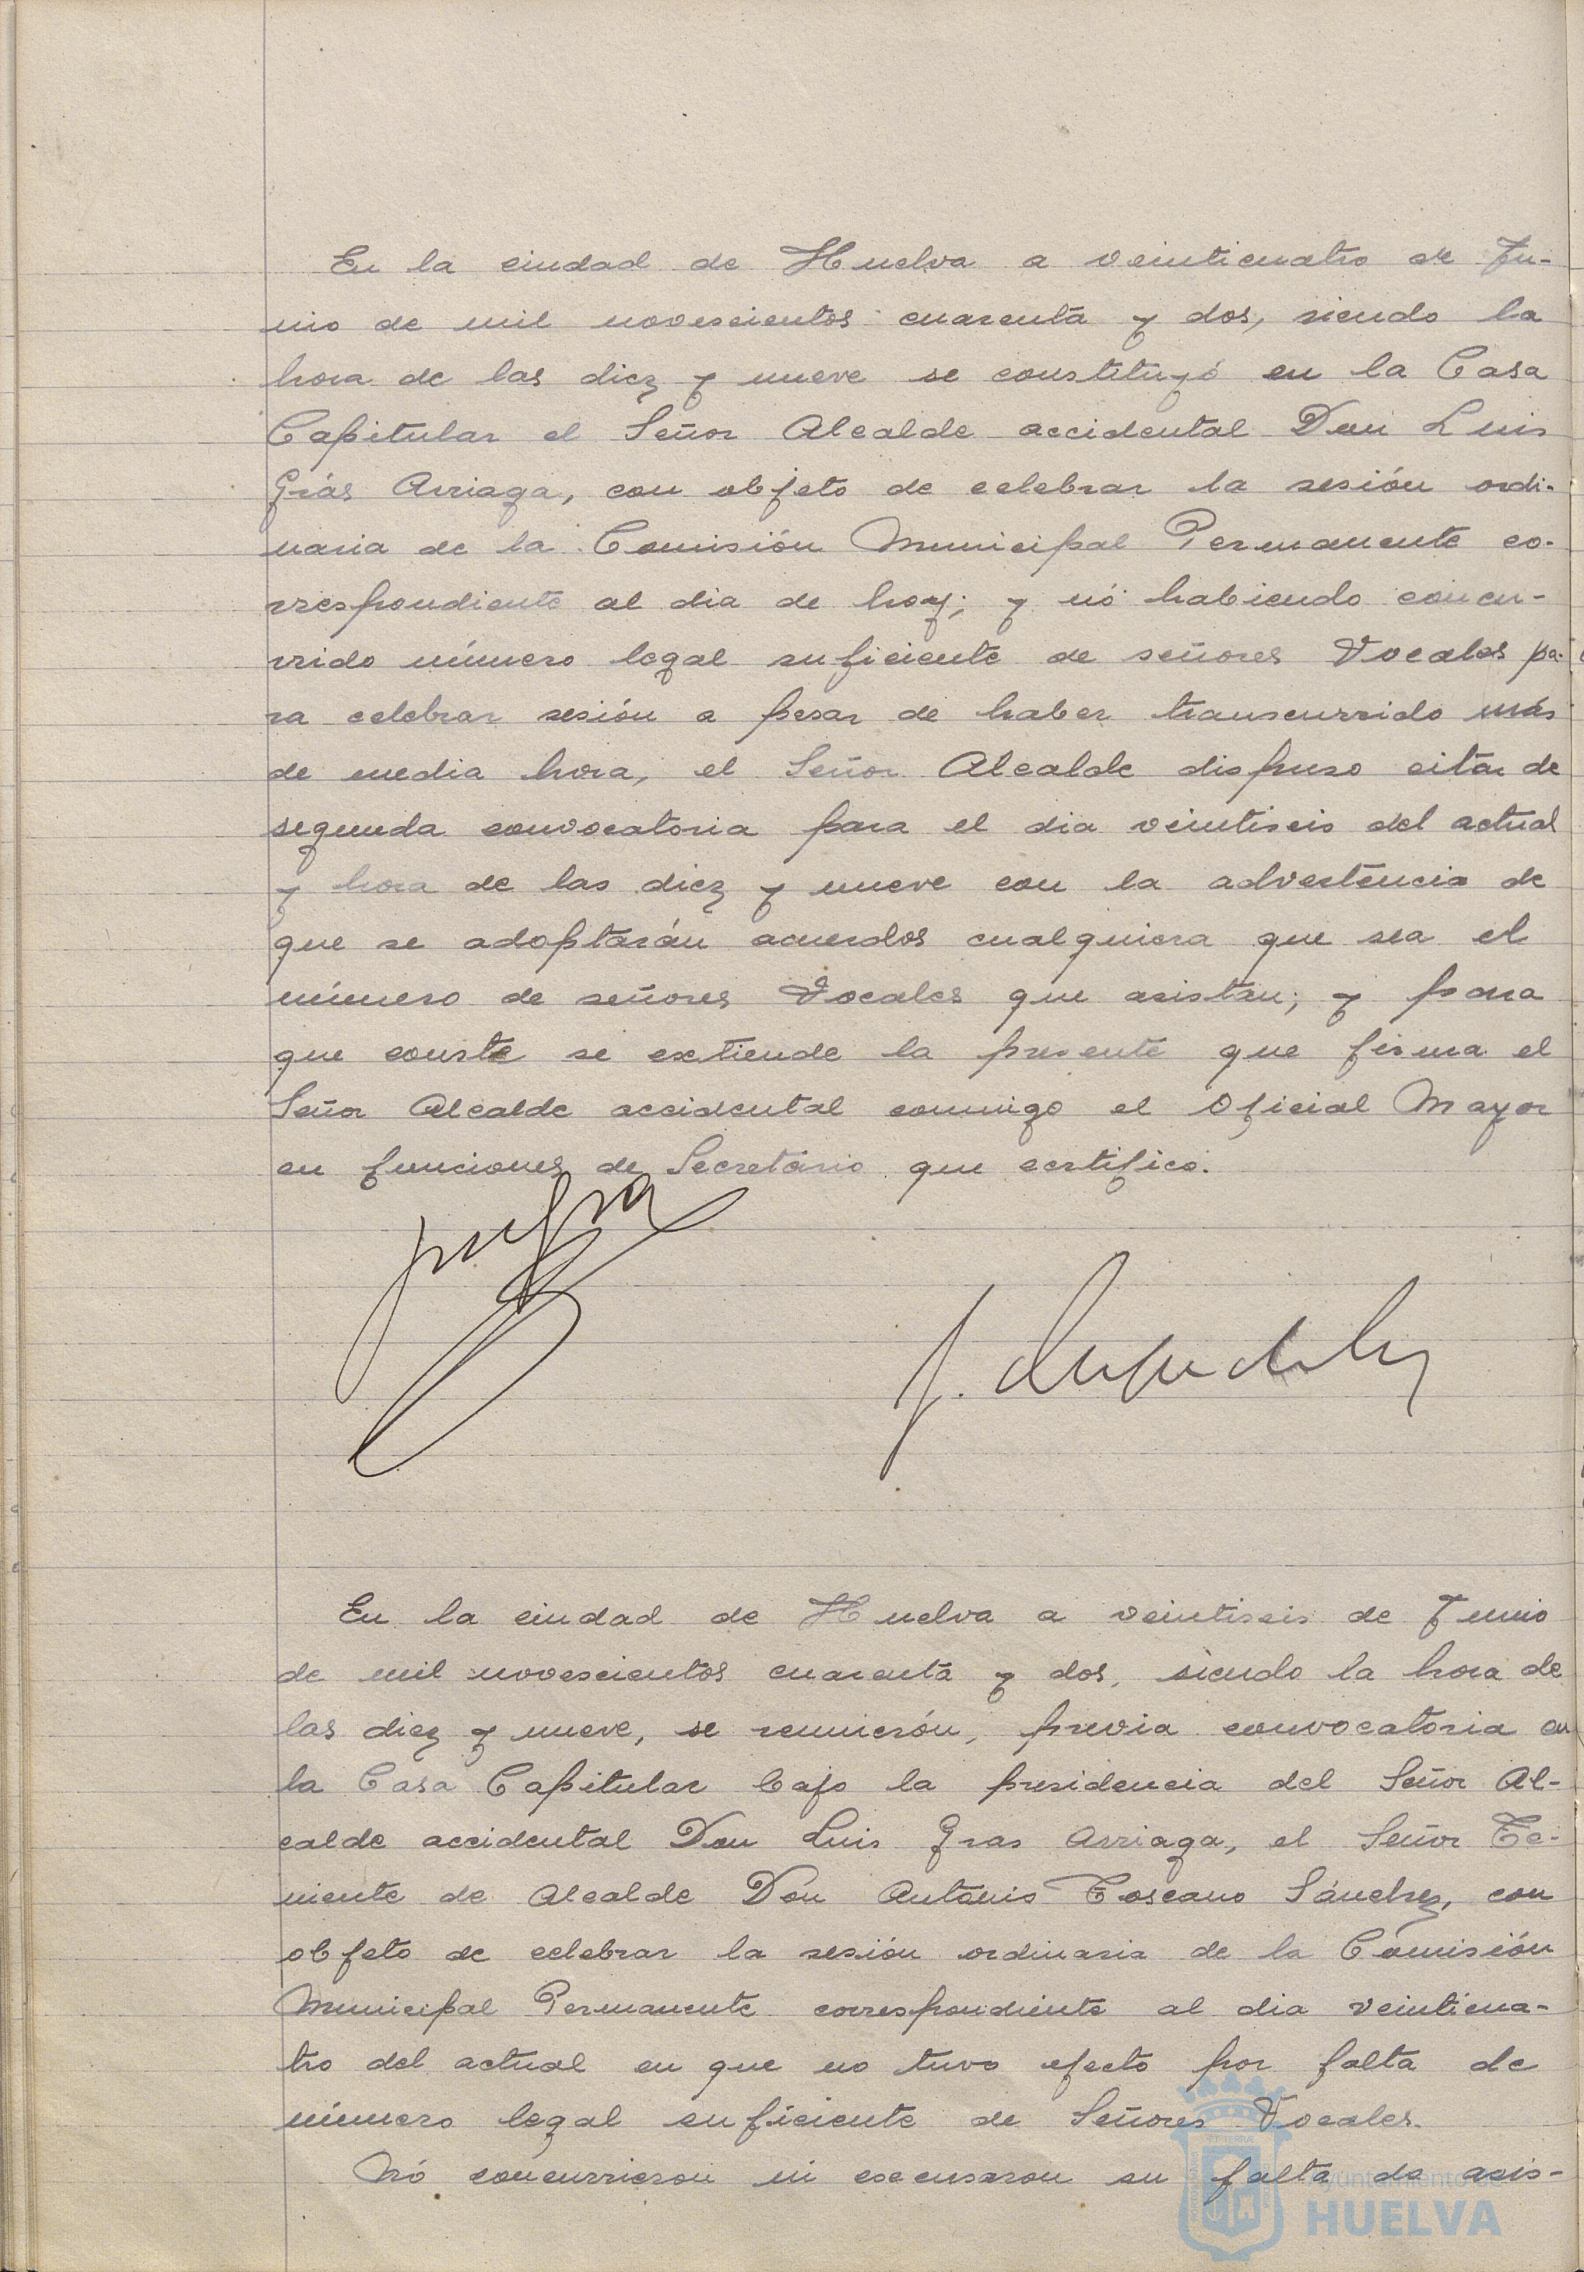 En la ciudad de Huelva a veinticuatro de Ju-
nio de mil novescientos cuarenta y dos, siendo la
hora de las diez y nueve se constituyó en la Casa
Capitular el Señor Alcalde accidental Don Luis
Grás Arriaga, con objeto de celebrar la sesión ordi-
naria de la Comisión Municipal Permanente co-
rrespondiente al dia de hoy; y nó habiendo concu-
rrido número legal suficiente de señores Vocales pa-
ra celebrar sesión a pesar de haber transcurrido más
de media hora, el Señor Alcalde dispuso citar de
segunda convocatoria para el dia veintiseis del actual
y hora de las diez y nueve con la advertencia de
que se adoptarán acuerdos cualquiera que sea el
número de señores Vocales que asistan; y para
que conste se extiende la presente que firma el
Señor Alcalde accidental conmigo el Oficial Mayor
en funciones de Secretario que certifico.
En la ciudad de Huelva a veintiseis de Junio
de mil novescientos cuarenta y dos, siendo la hora de
las diez y nueve, se reunierón, previa convocatoria en
la Casa Capitular bajo la presidencia del Señor Al-
calde accidental Don Luis Gras Arriaga, el Señor Te-
niente de Alcalde Don Antonio Toscano Sánchez, con
objeto de celebrar la sesión ordinaria de la Comisión
Municipal Permanente correspondiente al dia veinticua-
tro del actual en que no tuvo efecto por falta de
número legal suficiente de Señores Vocales.
Nó concurrieron ni escusaron su falta de asis-
Ayuntamiento de
HUELVA